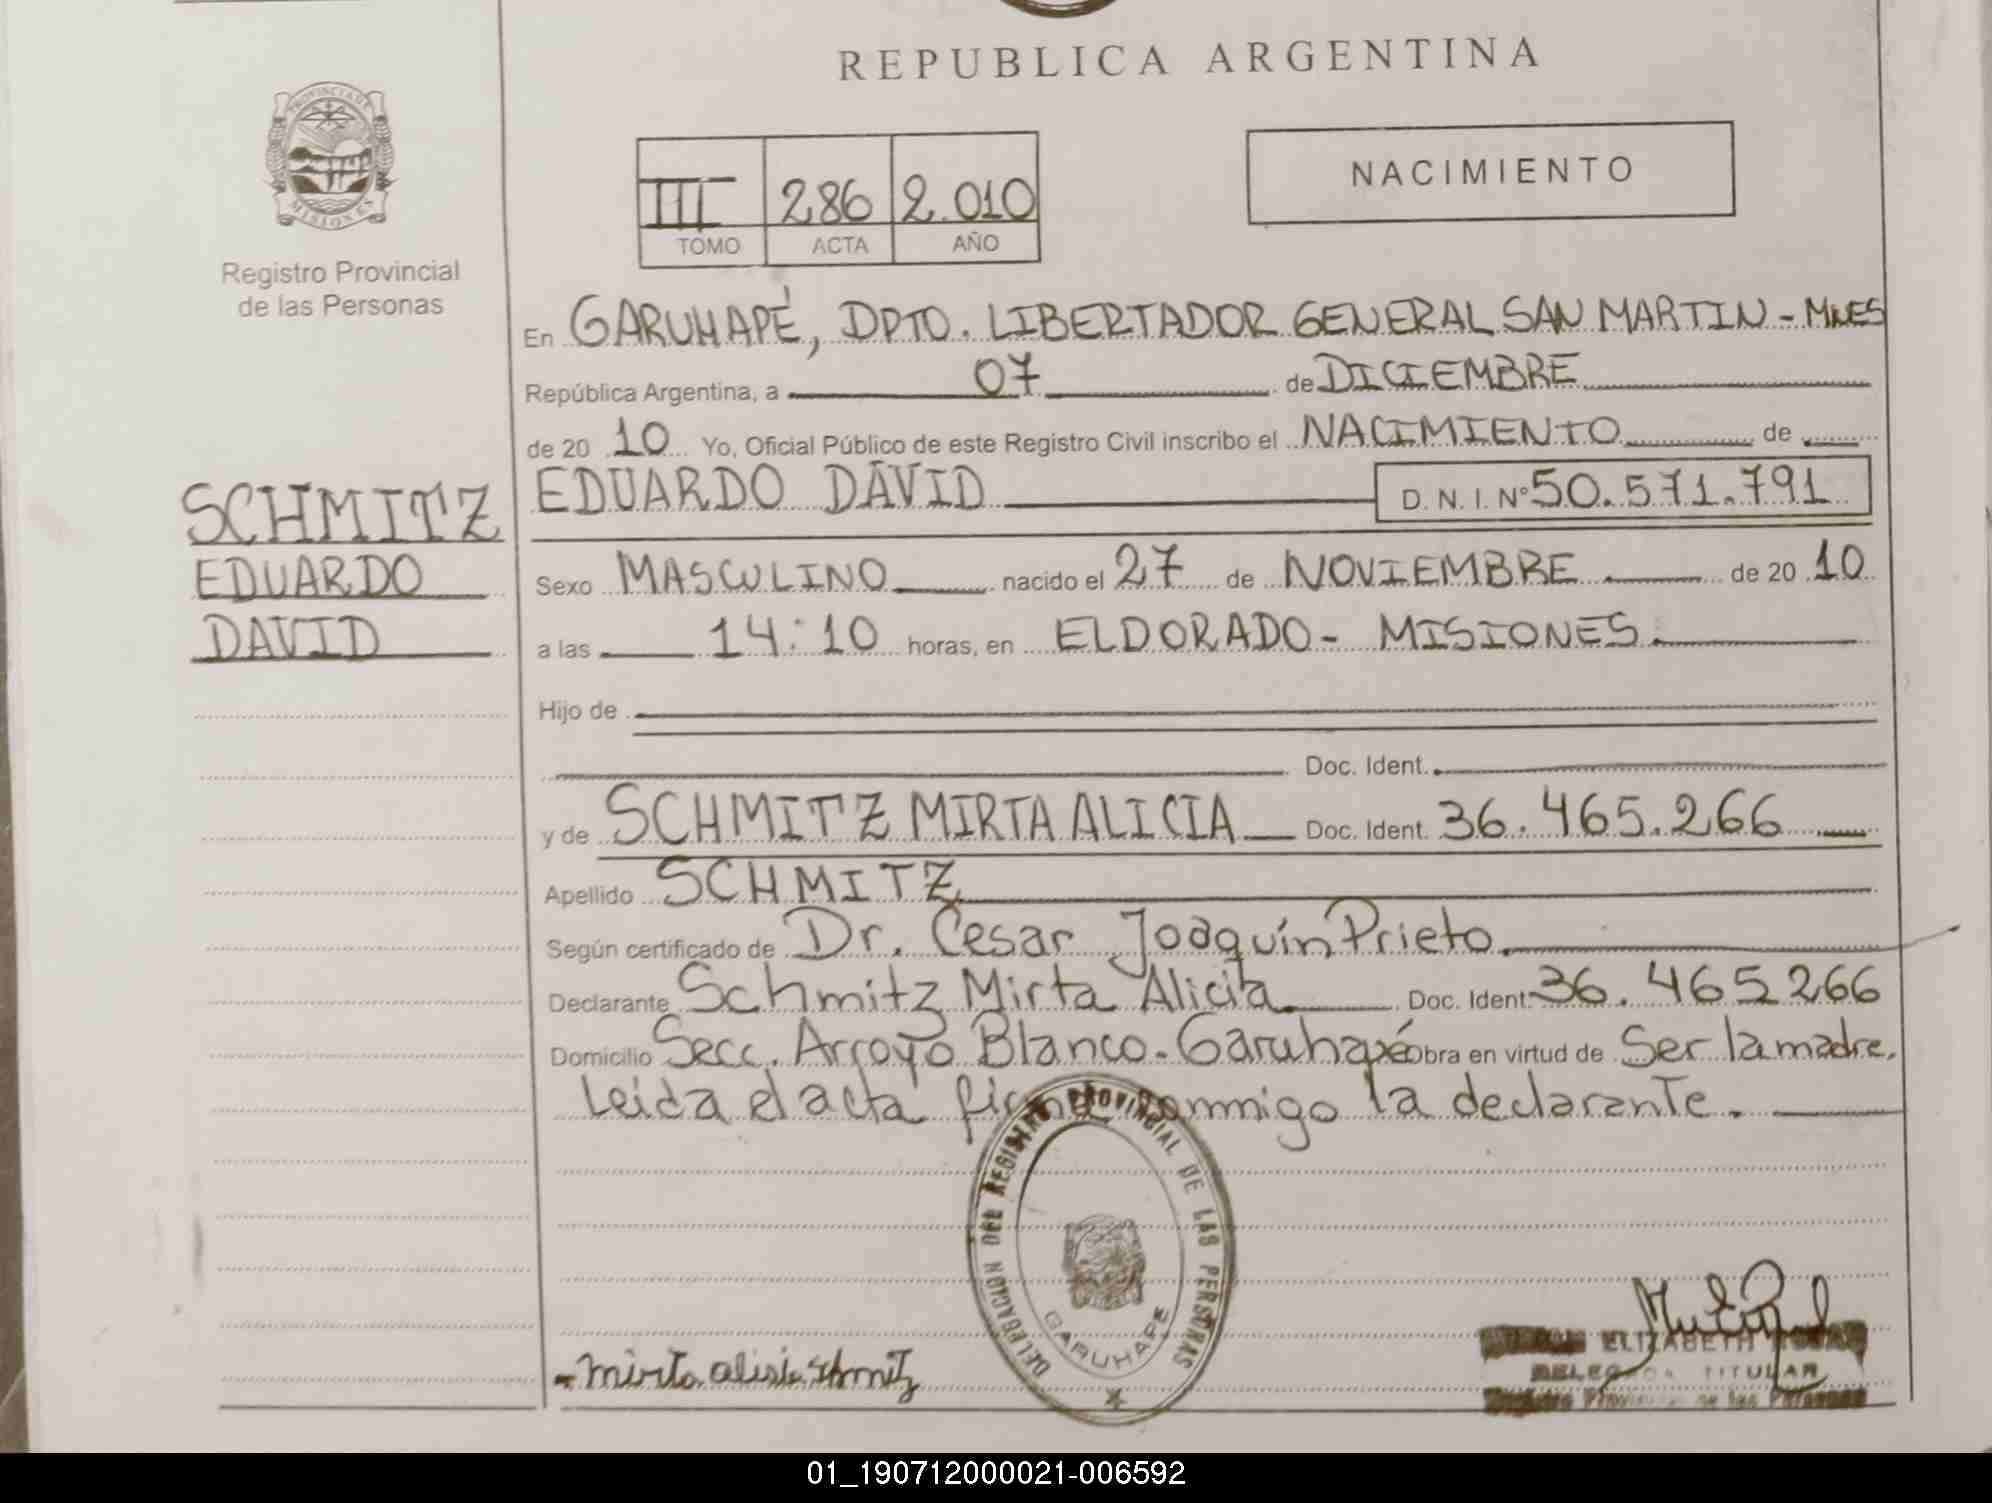 REPUBLICA ARGENTINA
PROVINCIA DE
MISIONES
Registro Provincial
de las Personas
III 286 2.010
TOMO ACTA AÑO
NACIMIENTO
En GARUHAPÉ, DPTO. LIBERTADOR GENERAL SAN MARTIN - MNES
República Argentina, a 07 de DICIEMBRE
de 20 10 Yo, Oficial Público de este Registro Civil inscribo el NACIMIENTO de
SCHMITZ
EDUARDO
DAVID
EDUARDO DAVID D. N. I. Nº 50.571.791
Sexo MASCULINO nacido el 27 de NOVIEMBRE de 20 10
a las 14:10 horas, en ELDORADO - MISIONES
Hijo de
Doc. Ident.
y de SCHMITZ MIRTA ALICIA Doc. Ident. 36.465.266
Apellido SCHMITZ
Según certificado de Dr. Cesar Joaquín Prieto.
Declarante Schmitz Mirta Alicia Doc. Ident. 36.465266
Domicilio Secc. Arroyo Blanco - Garuhapé obra en virtud de Ser la madre.
Leida el acta firma conmigo la declarante.
DELEGACION DEL REGISTRO PROVINCIAL DE LAS PERSONAS
GARUHAPE
- Mirta alisia Shmitz
ELIZABETH
DELEGADA TITULAR
Registro Provincial de las Personas
01_190712000021-006592